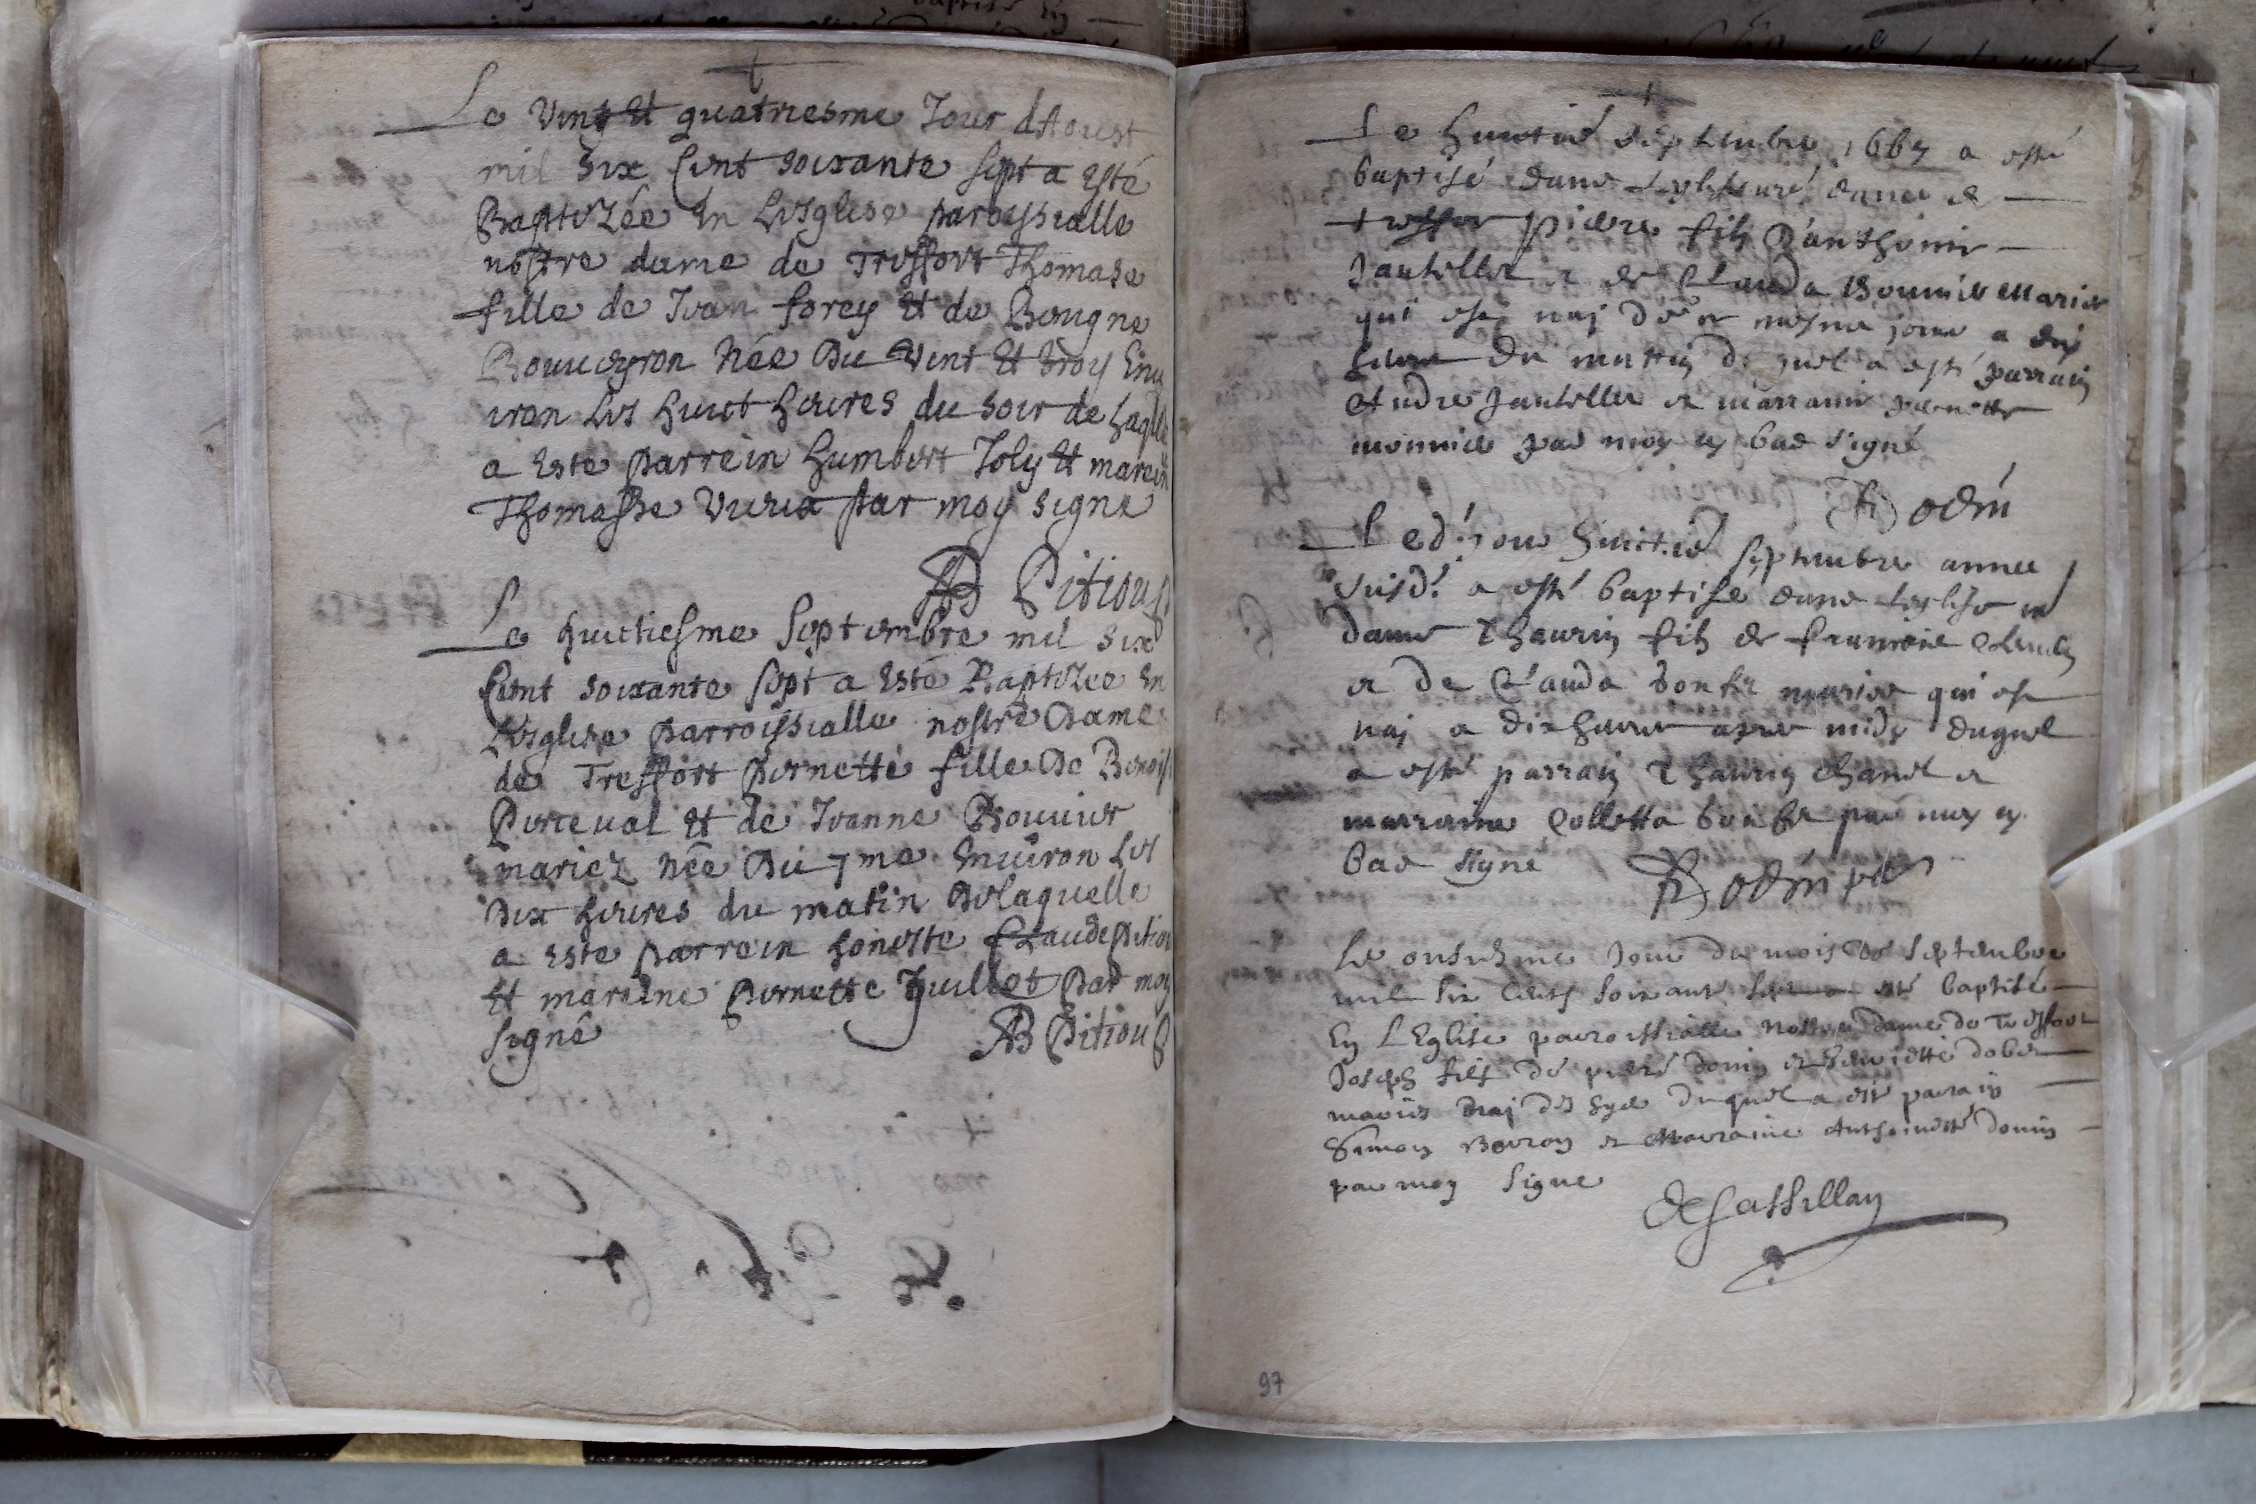 Le vint et quatriesme Jour dAoust
mil six Cent soixante sept a esté
Baptizée en Lesglise paroissialle
nostre dame de Treffort Thomase
fille de Jvan forey et de Bougne
Bouueyron née du vint et troy Enu
iron Les huict heures du soir de Laqlle
a este parrein humbert Joly et marein
Thomasse par moy signe
AB Pitiou
Le huictiesme Septembre mil six
Cent soixante sept a esté Baptizee en
Lesglise parroissialle nostre dame
de Treffort pernette fille de Benoist
Perceual et de Jvanne Bouuier
mariez née du 7me enuiron Les
dix heures du matin de laquelle
a este parrein honeste Claude pitiou
et mareine pernette Juillet par moy
signé AB Pitiou
Le huictie septembre 1667 a esté
baptisé dans dame de
treffor piere fils d'anthoine
et de Clauda mariez
qui est naj mesme jour a dix
heure du mattin duquel a esté parrain
Andre et marraine pernette
monnier par moy en bas signé
Bodin
Led. jour huictie septembre annee
susd. a esté baptisé dans leglise nd
dame Thaurin fils de francoise
et de Clauda bonfil mariez qui est
naj a dix heures apres midy duquel
a esté parrain Thaurin chanel et
marraine Colletta par moy en
bas signé Bodin pbr
Le onsiesme Jour du mois de septembre
mil six Cents soixante sept a esté baptisé
En LEglise parroissialle Nostre dame de Treffort
Joseph fils de pierre donin et
mariés naj dhyer duquel a esté parrain
Simon et Marraine Anthoinette donin
par moy signe
97